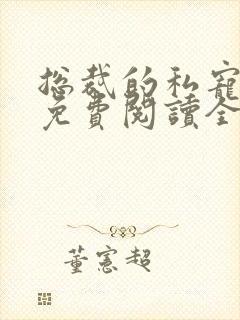 總裁的私寵
免費閱讀全
董憲超